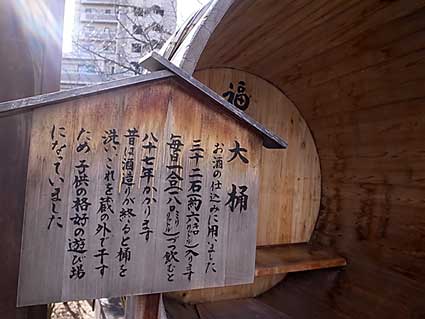 福
大桶
お酒の仕込みに用いました
三十二石(約六キロリットル)入ります
毎日一合(一八〇ミリリットル)づつ飲むと
八十七年かかります
昔は酒造りが終ると桶を
洗い、これを蔵の外で干す
ため、子供の格好の遊び場
になっていました